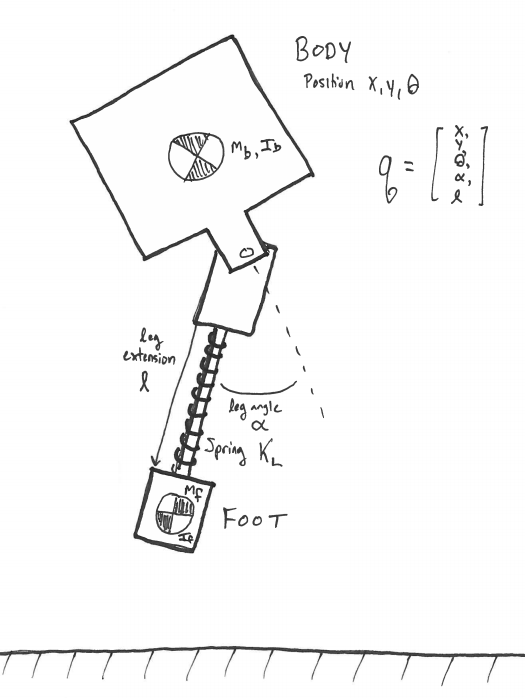 BODY
Position x, y, θ
M_b, I_b
q = [x, y, θ, α, l]
leg
extension
l
leg angle
α
Spring K_L
M_f
I_f
FOOT